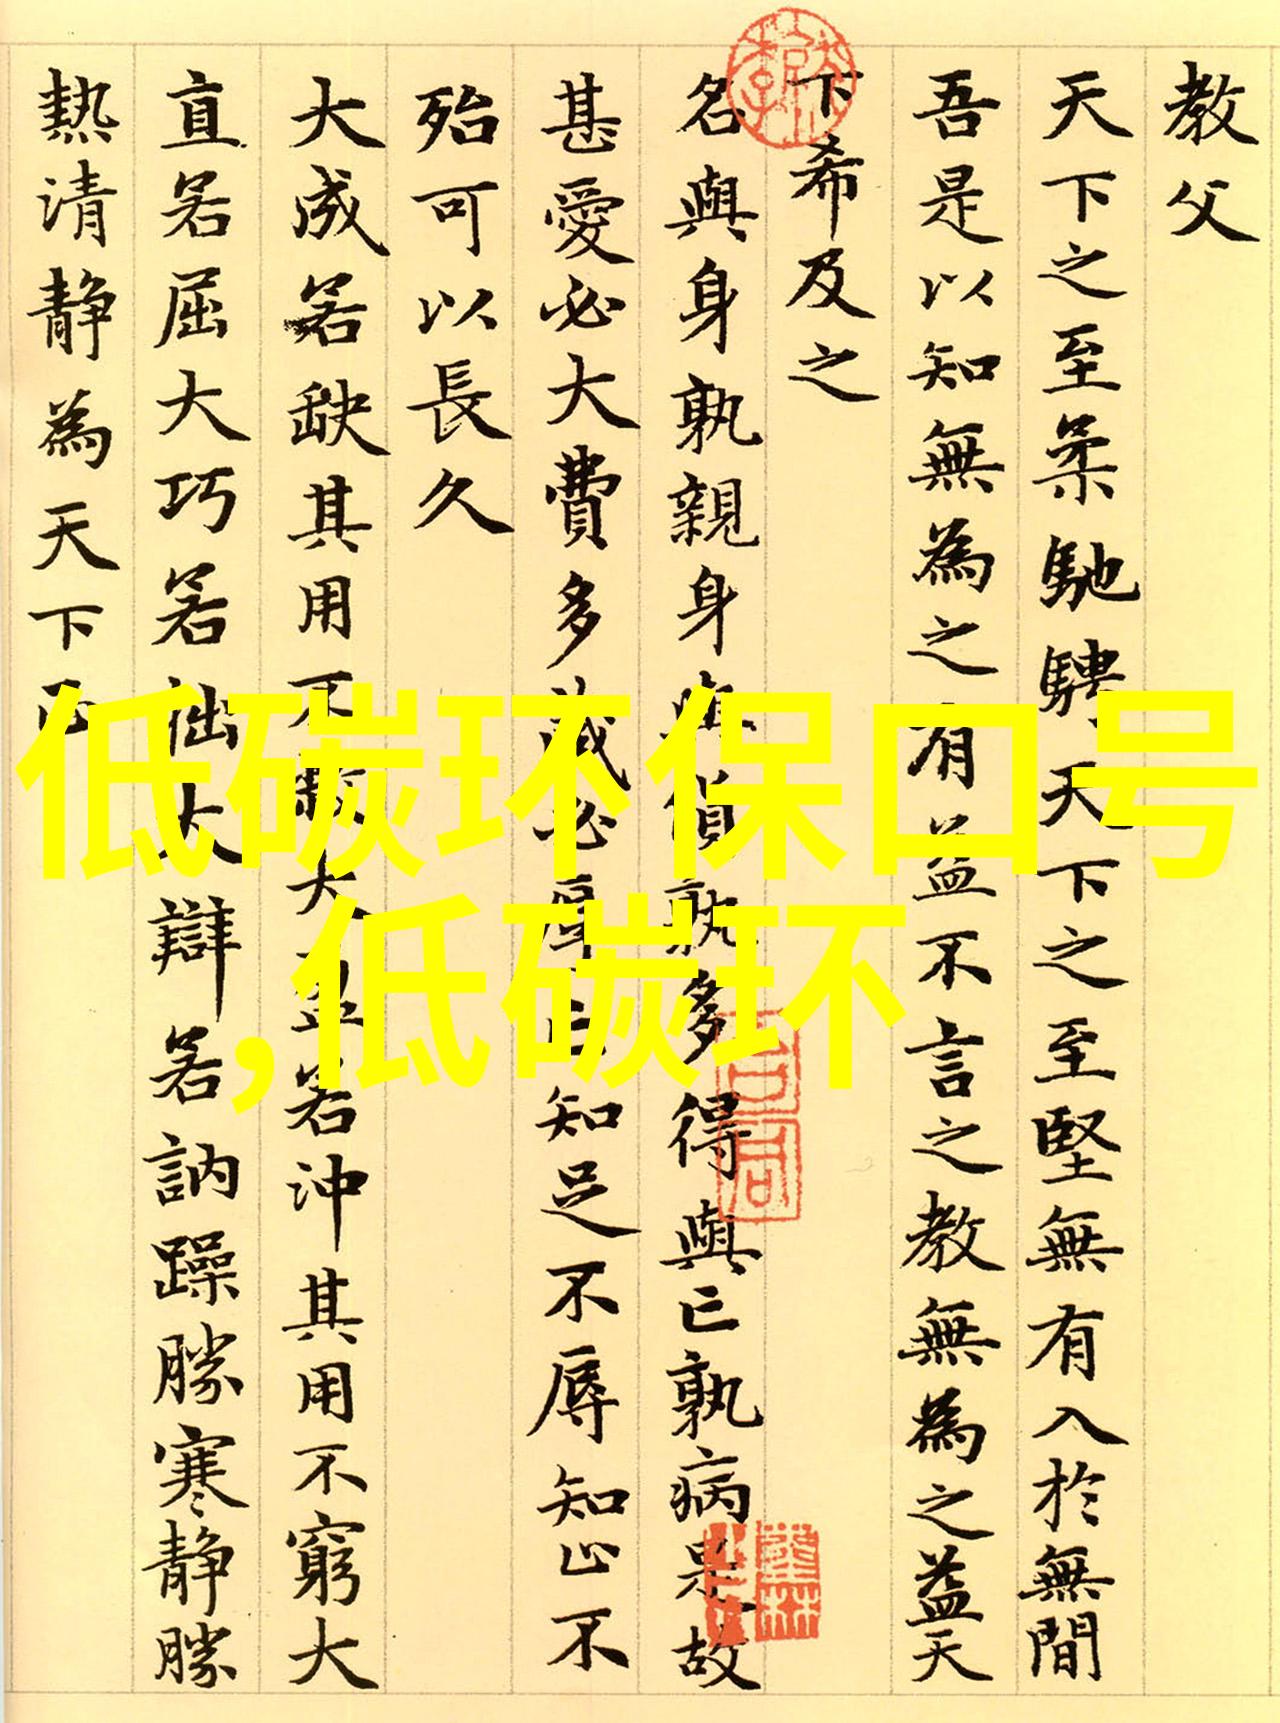 教父
天下之至柔馳騁天下之至堅無有入於無間
吾是以知無為之有益不言之教無為之益天
下希及之
名與身孰親身與貨孰多得與亡孰病是故
甚愛必大費多藏必厚亡知足不辱知止不
殆可以長久
大成若缺其用不敝大盈若沖其用不窮大
直若屈大巧若拙大辯若訥躁勝寒靜勝
熱清靜為天下正
低碳环保口号
,低碳环